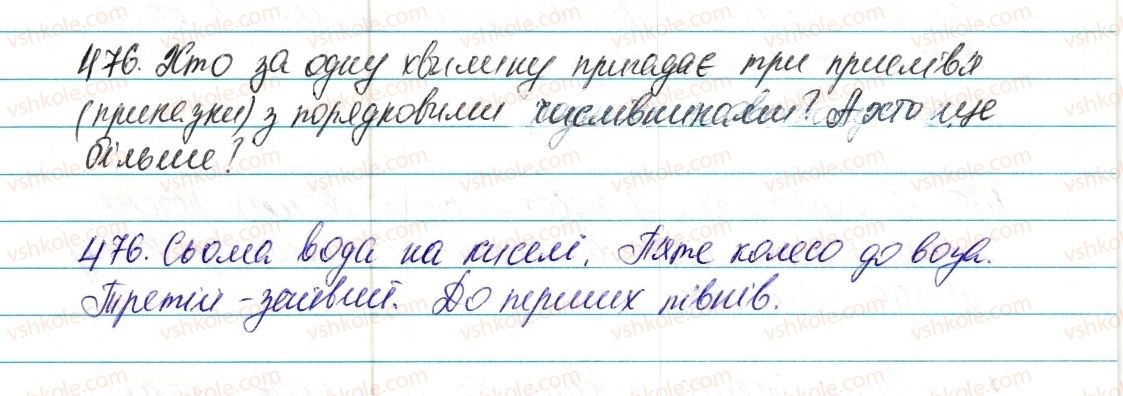 476. Хто за одну хвилину пригадає три прислівя
(приказки) з порядковими числівниками? А хто ще
більше?
476. Сьома вода на киселі. Пяте колесо до воза.
Третій - зайвий. До перших півнів.